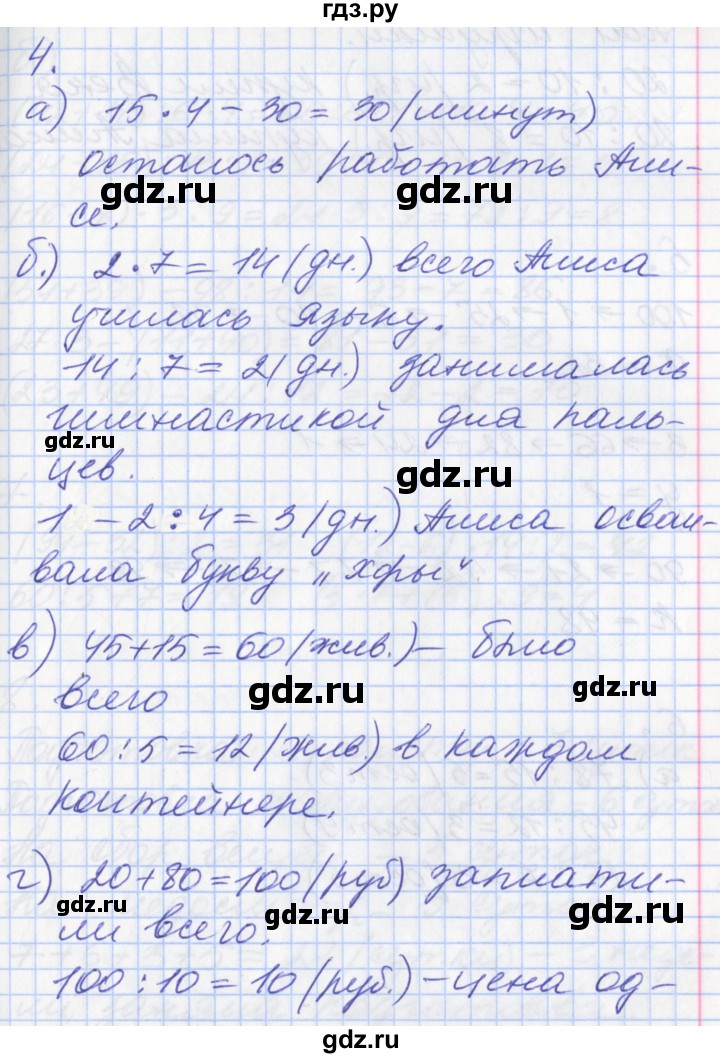 гдз.ру
4.
а) 15·4-30=30(минут)
осталось работать Али-
се.
б.) 2·7=14(дн.) всего Алиса
училась языку.
14:7=2(дн.) занималась
гимнастикой для паль-
цев.
1 -2:4=3(дн.) Алиса осваи-
вала букву „хфры".
в) 45+15=60(жив.)- было
всего
60:5=12(жив) в каждом
контейнере.
г) 20+80=100(руб) заплати-
ли всего.
100:10=10(руб.)-цена од-
gdz.ru
gdz.ru
gdz.ru
gdz.ru
gdz.ru
gdz.ru
gdz.ru
gdz.ru
gdz.ru
gdz.ru